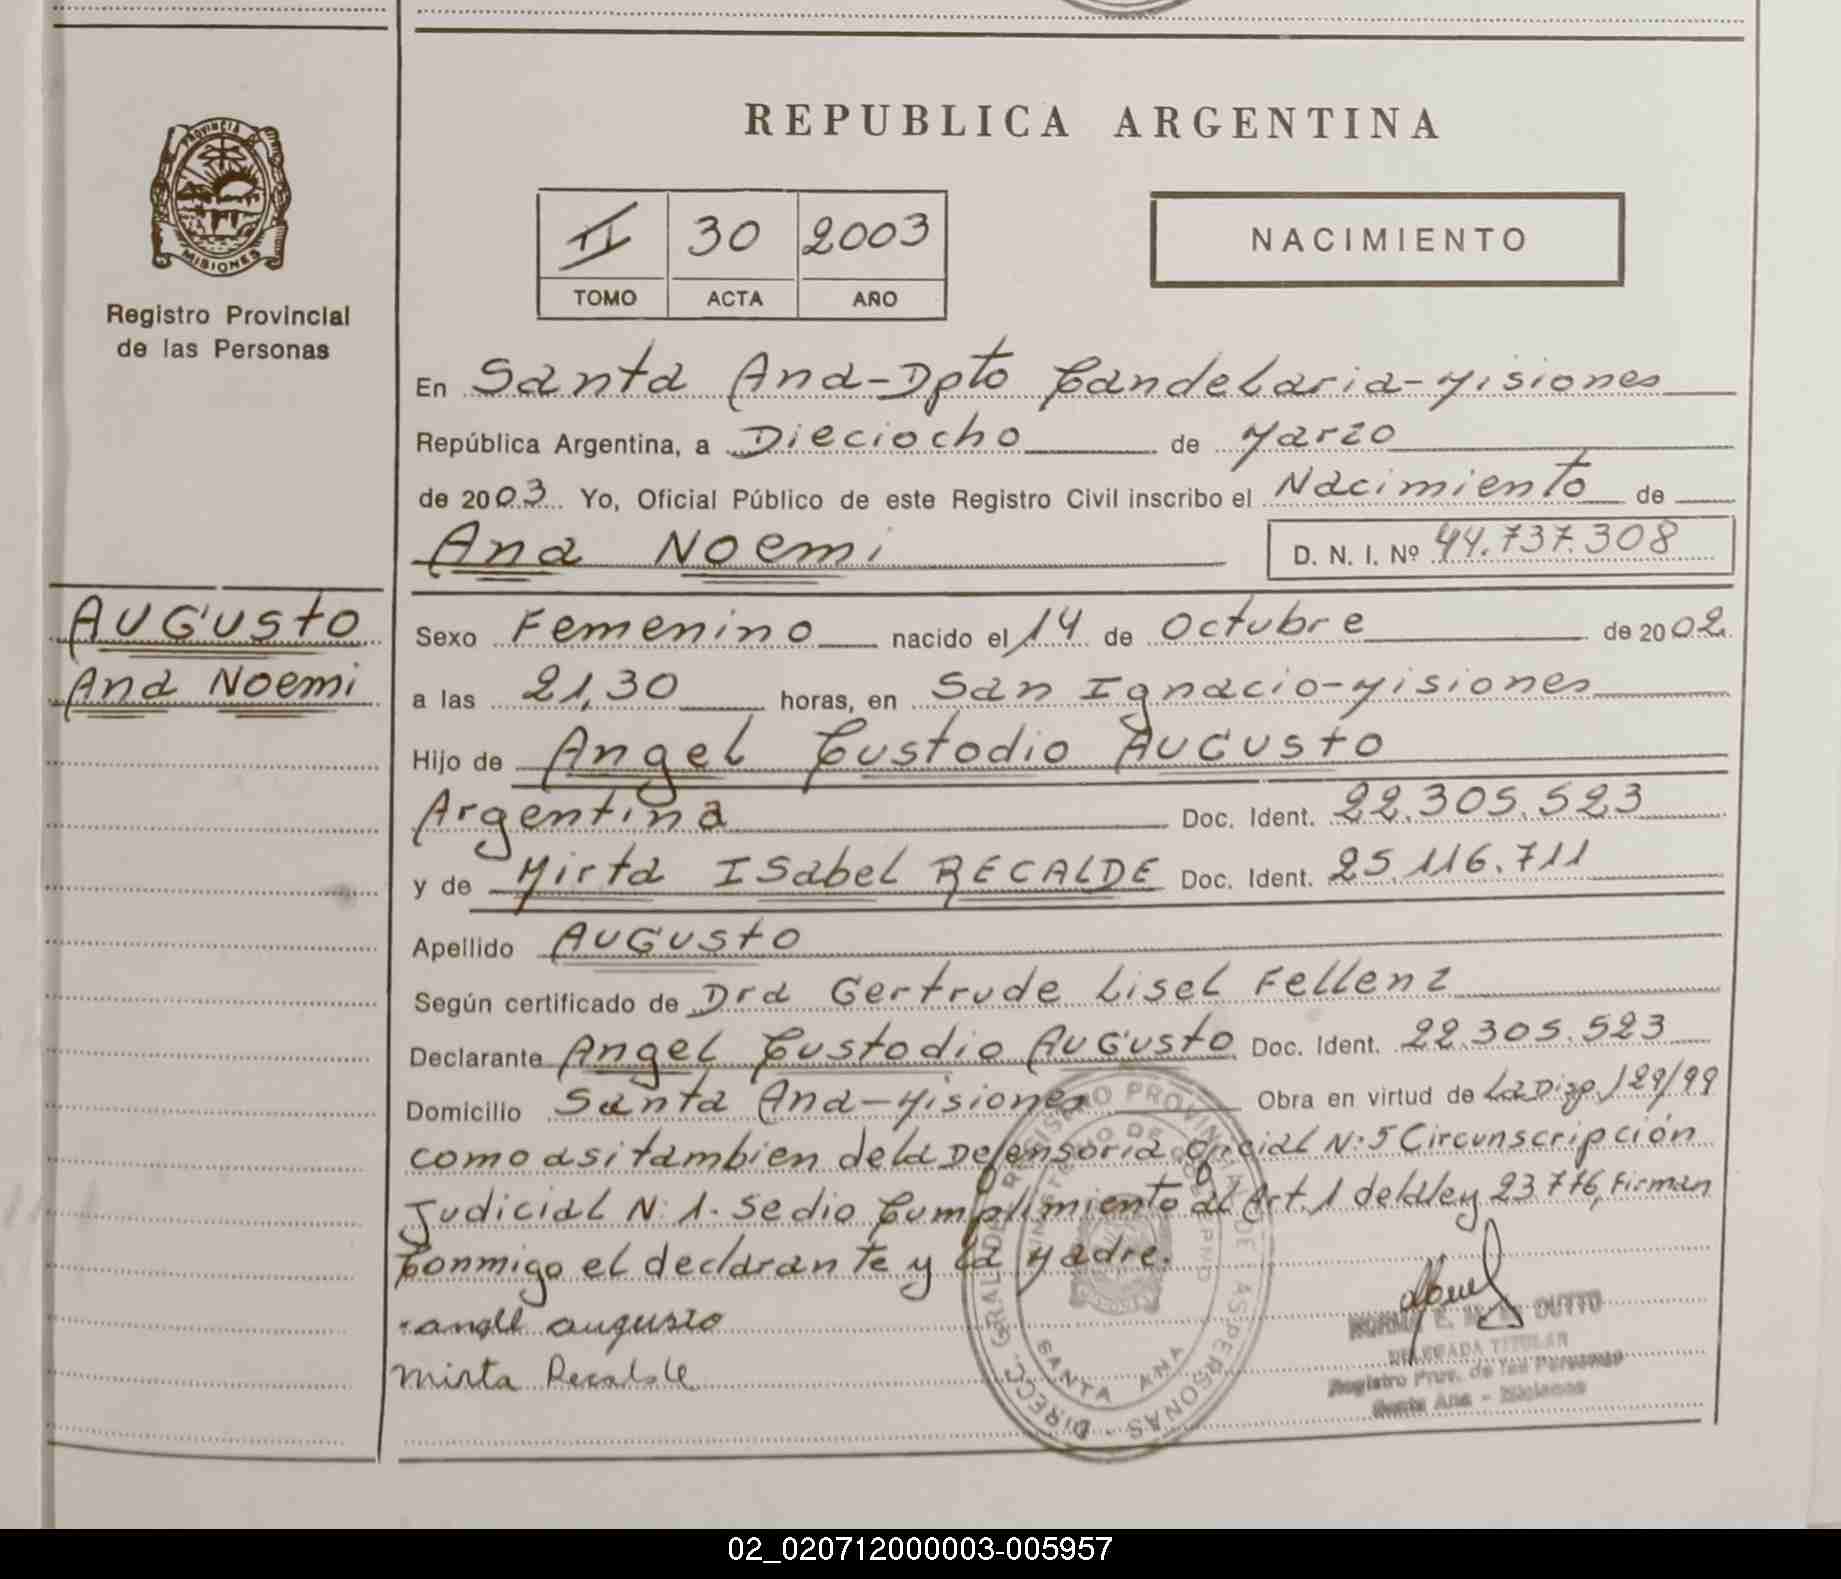 REPUBLICA ARGENTINA
PROVINCIA DE
MISIONES
Registro Provincial
de las Personas
II 30 2003
TOMO ACTA AÑO
NACIMIENTO
En Santa Ana-Dpto Candelaria-Misiones
República Argentina, a Dieciocho de Marzo
de 2003. Yo, Oficial Público de este Registro Civil inscribo el Nacimiento de
Ana Noemi D. N. I. Nº 44.737.308
AUGUSTO
Ana Noemi
Sexo Femenino nacido el 14 de Octubre de 2002
a las 21,30 horas, en San Ignacio-Misiones
Hijo de Angel Custodio AUGUSTO
Argentina Doc. Ident. 22.305.523
y de Mirta ISabel RECALDE Doc. Ident. 25.116.711
Apellido AUGUSTO
Según certificado de Dra Gertrude Lisel Fellenz
Declarante Angel Custodio AUGUSTO Doc. Ident. 22.305.523
Domicilio Santa Ana-Misiones Obra en virtud de La Disp. 129/99
como asi tambien de la Defensoria Oficial N: 5 Circunscripción
Judicial N: 1. Se dio Cumplimiento al Art. 1 de la ley 23776, Firman
Conmigo el declarante y la Madre.
angel augusto
Mirta Recalde
DIRECC. GRAL. DE REGISTRO PROVINCIAL DE LAS PERSONAS
MINISTERIO DE GOBIERNO
SANTA ANA
NORMA E. M. DE DUTTO
DELEGADA TITULAR
Registro Prov. de las Personas
Santa Ana - Misiones
02_020712000003-005957